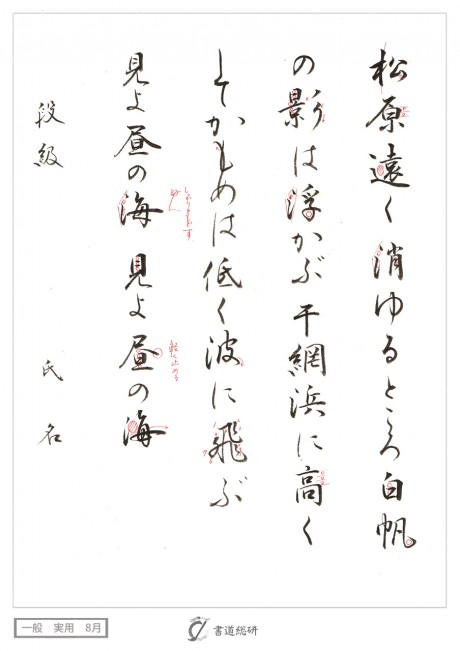 松原遠く消ゆるところ白帆
の影は浮かぶ干網浜に高く
してかもめは低く波に飛ぶ
見よ昼の海見よ昼の海
段級 氏名
一般 実用 8月
書道総研